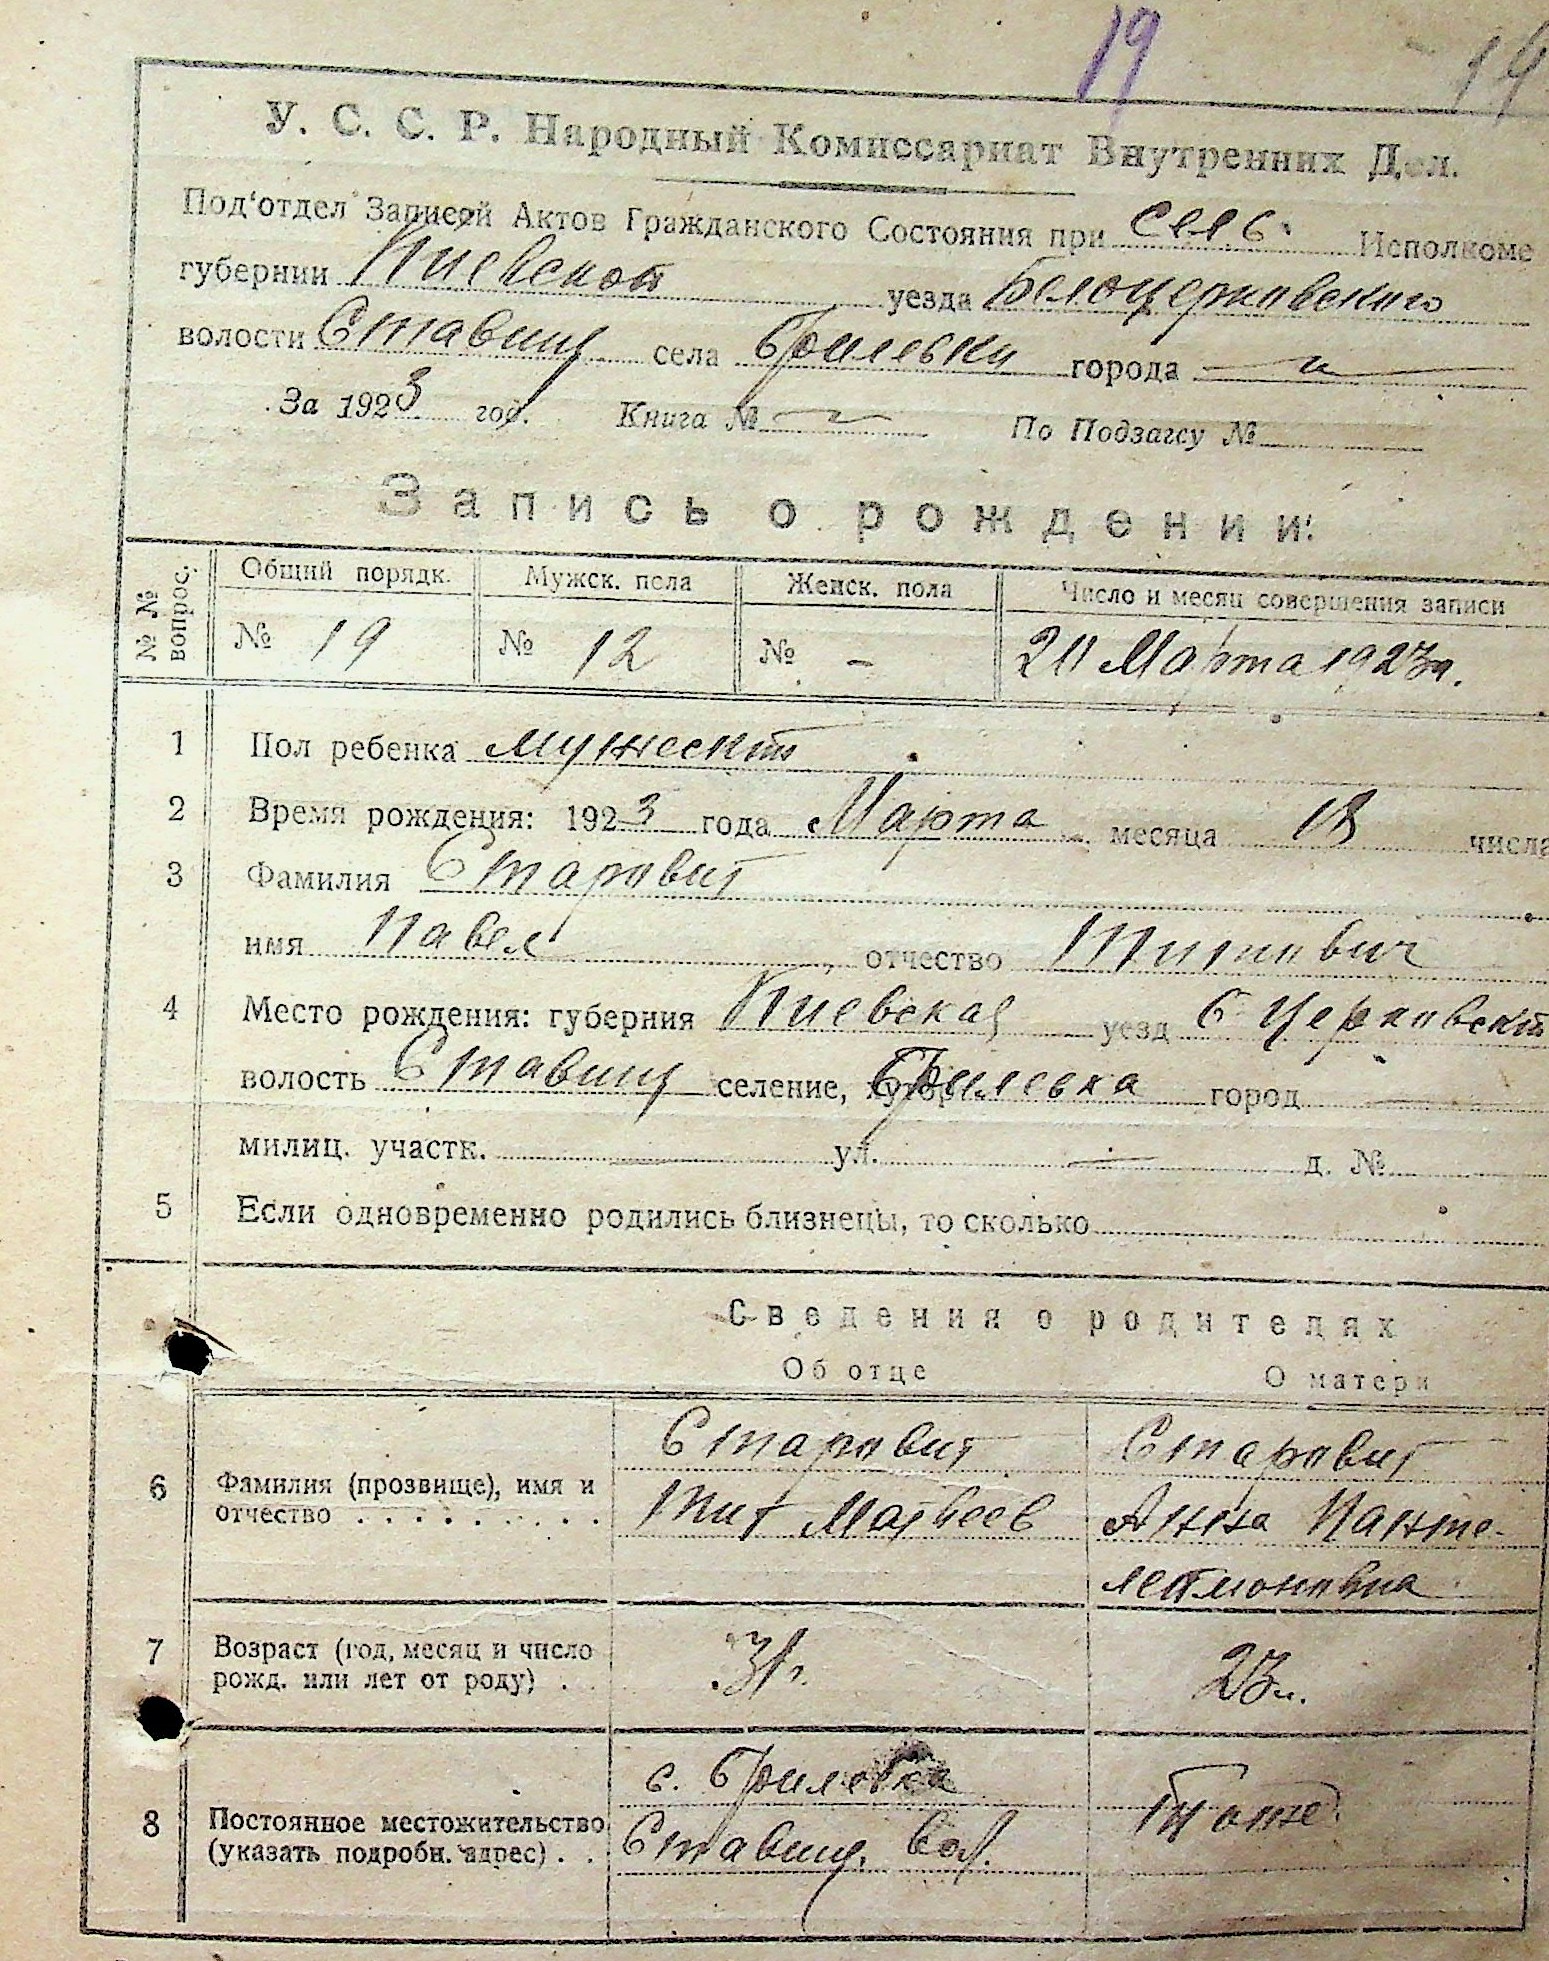 19 19
У. С. С. Р. Народный Комиссариат Внутренних Дел.
Под'отдел Записей Актов Гражданского Состояния при сель. Исполкоме
губернии Киевской уезда Белоцерковского
волости Ставищ села Брилевки города — " —
За 1923 год. Книга № — " — По Подзагсу №
Запись о рождении:
№ № вопрос. Общий порядк. Мужск. пола Женск. пола Число и месяц совершения записи
№ 19 № 12 № - 20 Марта 1923 г.
1 Пол ребенка мужеский
2 Время рождения: 1923 года Марта месяца 18 числа
3 Фамилия Старовит
имя Павел отчество Титович
4 Место рождения: губерния Киевская уезд Б Церковский
волость Ставищ селение, хутор Брилевка город —
милиц. участк. — ул. — д. №
5 Если одновременно родились близнецы, то сколько
Сведения о родителях
Об отце О матери
Старовит Старовит
6 Фамилия (прозвище), имя и Тит Матвеев Анна Панте-
отчество . . . . . . . . . леймоновна
7 Возраст (год, месяц и число 31 г. 23 л.
рожд. или лет от роду) . .
с. Брилевка Тоже
8 Постоянное местожительство Ставищ. вол.
(указать подробн. адрес) . .